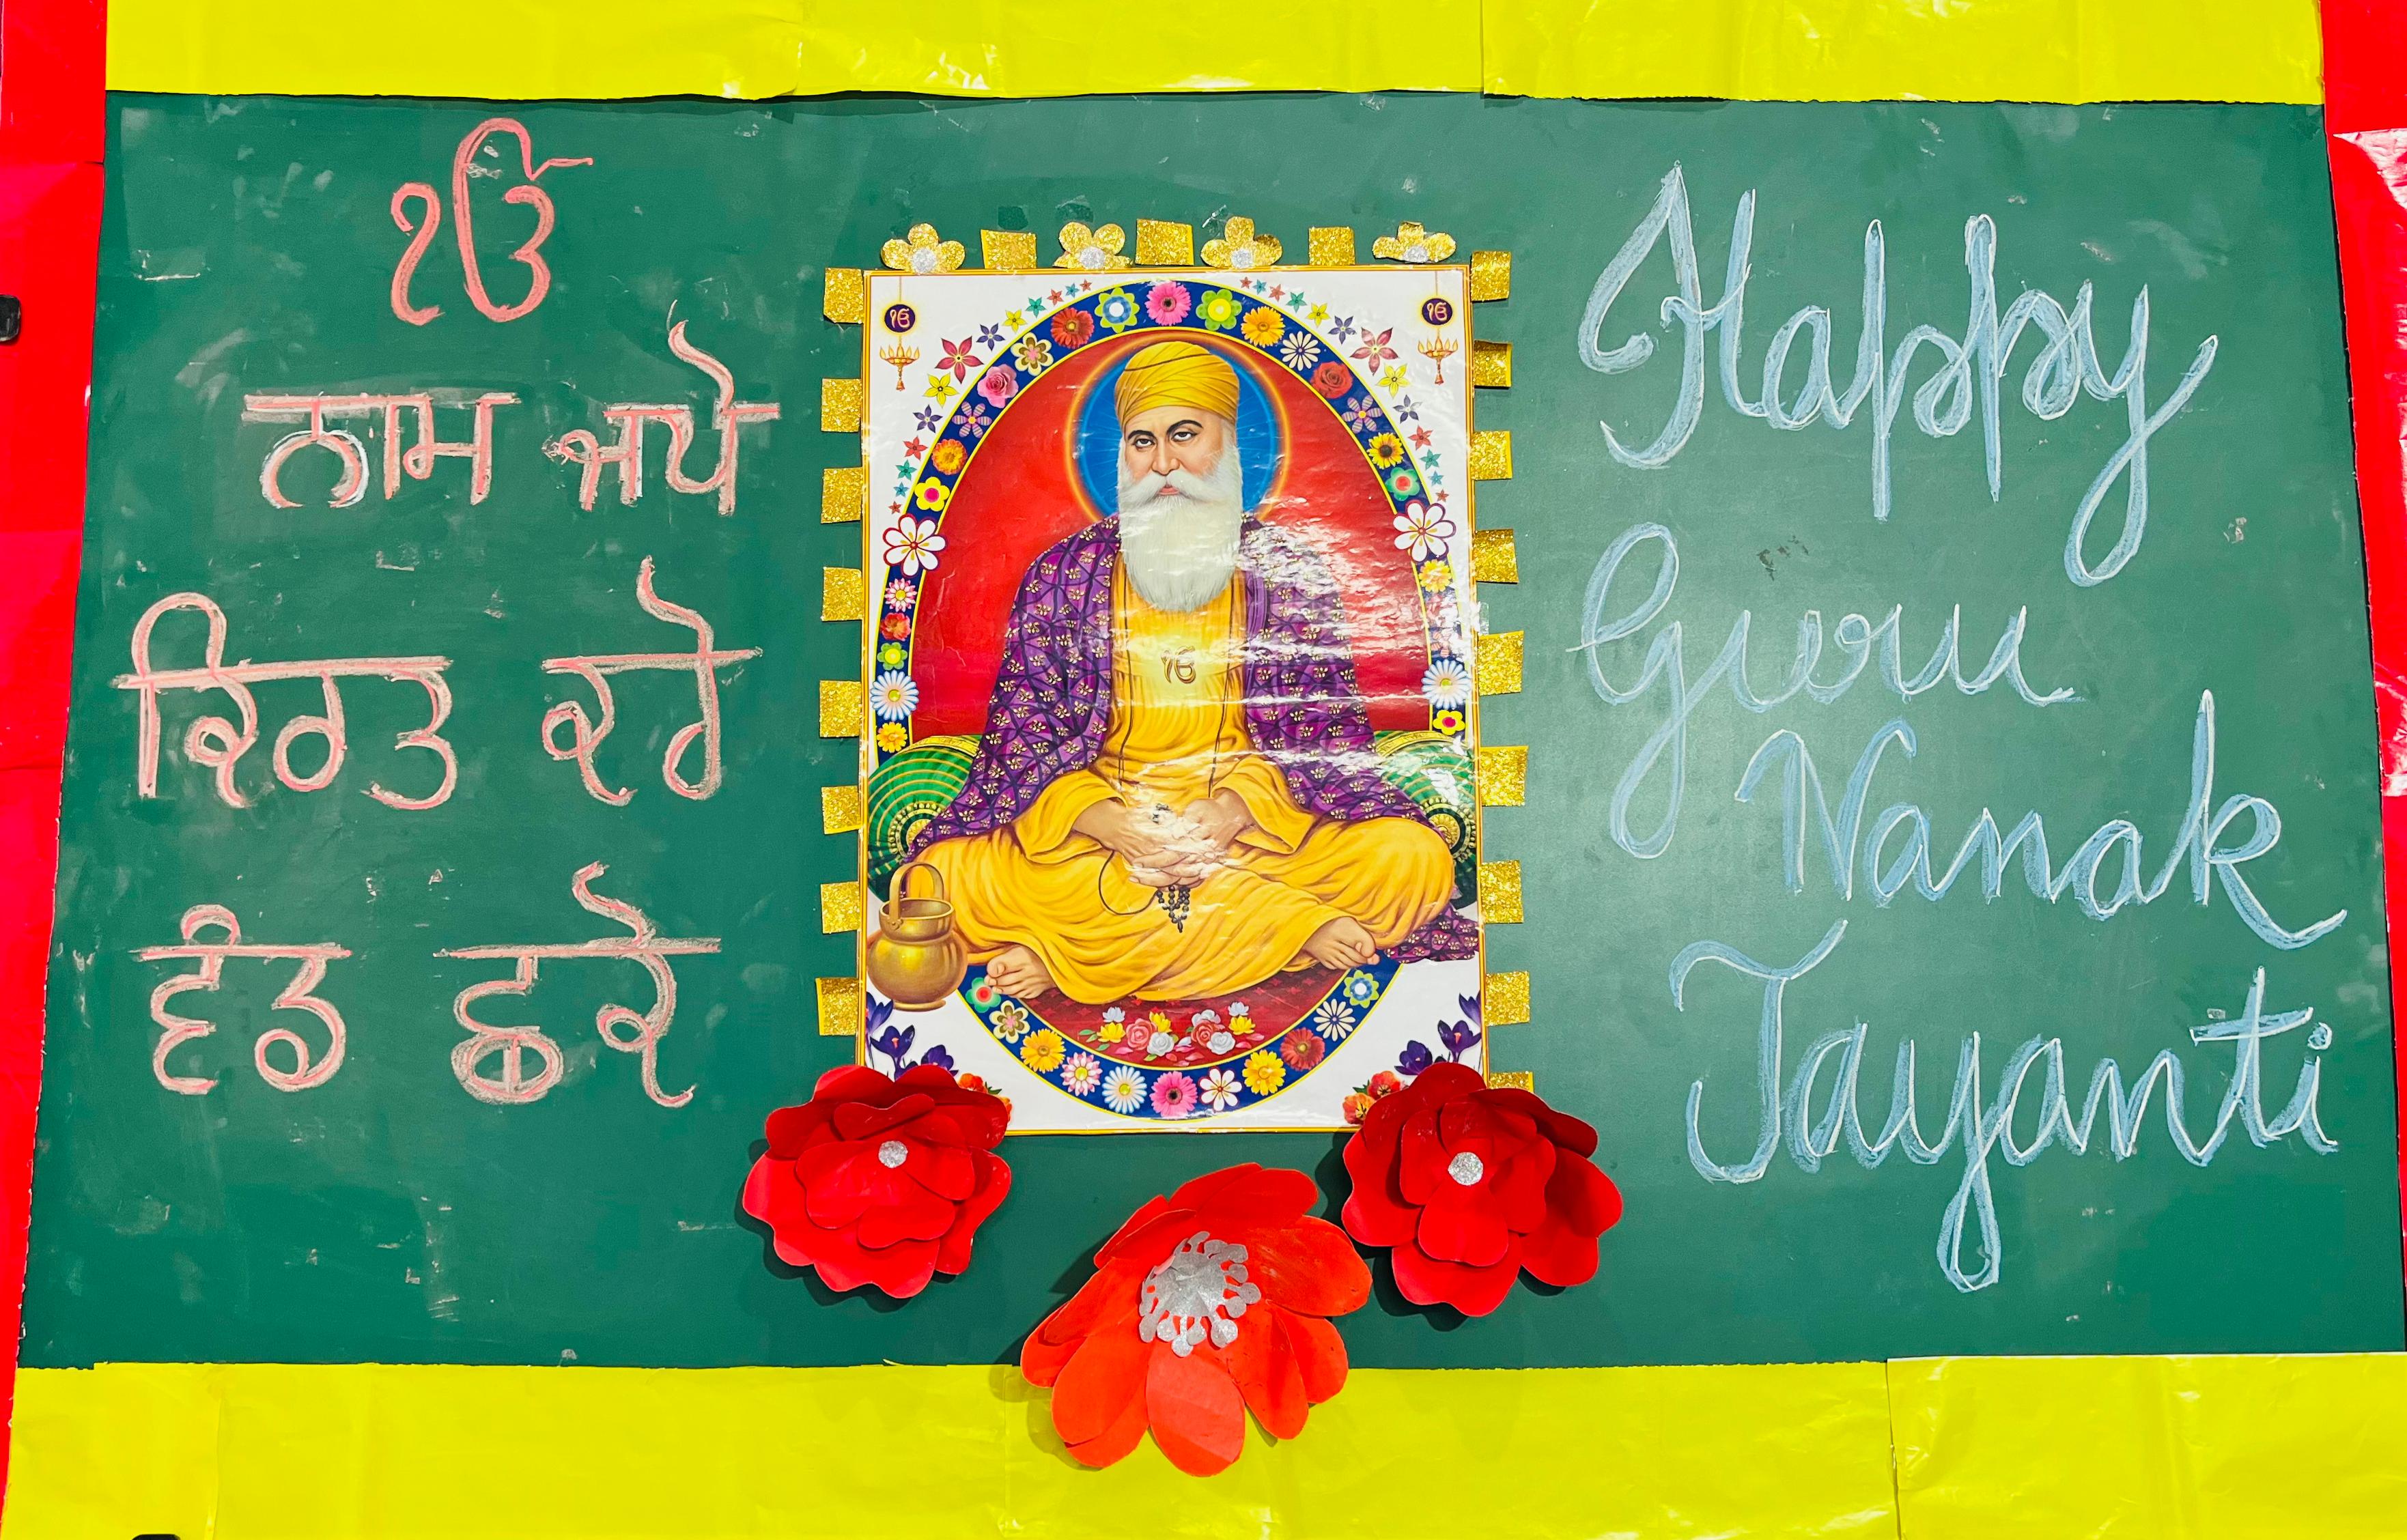 ੴ
ਨਾਮ ਜਪੋ
ਕਿਰਤ ਕਰੋ
ਵੰਡ ਛਕੋ
ੴ
ੴ
ੴ
Happy
Guru
Nanak
Jayanti